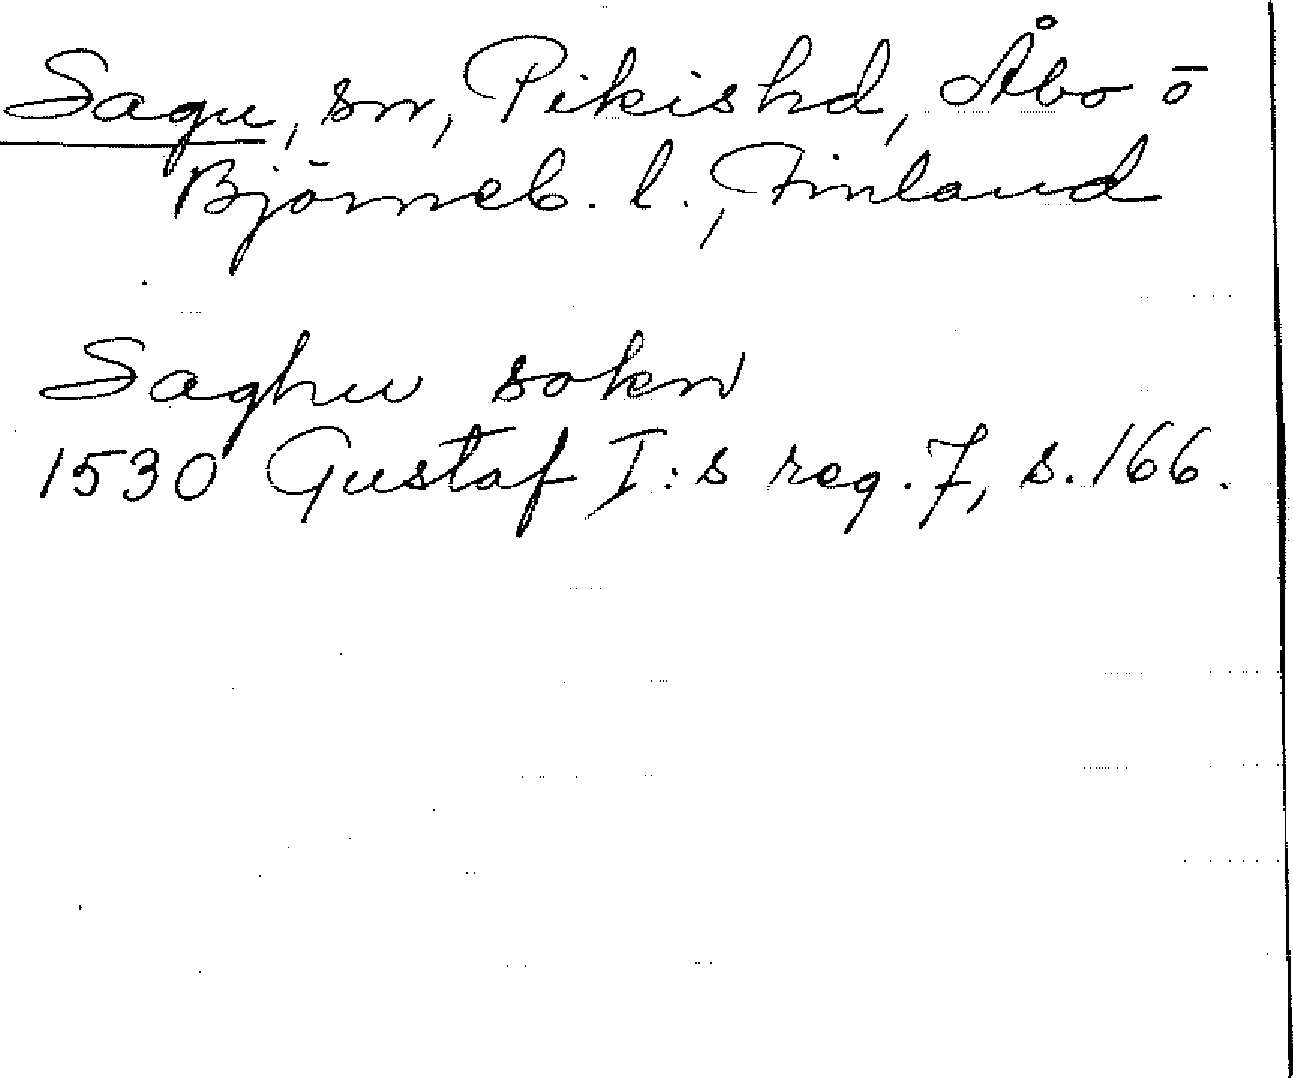 Sagu, sn, Pikis hd, Åbo o
Björneb. l., Finland
Saghu sokn
1530 Gustaf I:s reg. 7, s. 166.